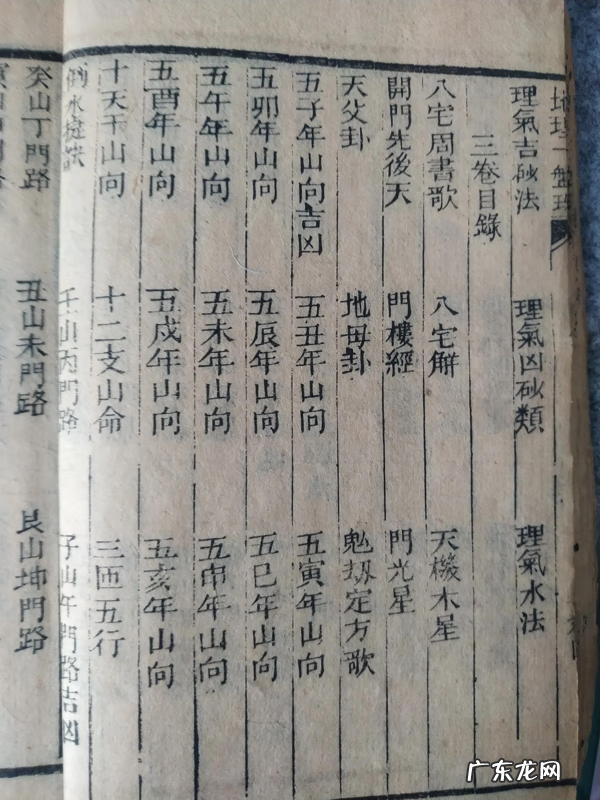 地理一盤珠
理氣吉砂法 理氣凶砂類 理氣水法
三卷目錄
八宅周書歌 八宅解 天機木星
開門先後天 門樓經 門光星
天父卦 地母卦 刼定方歌
五子年山向吉凶 五丑年山向 五寅年山向
五卯年山向 五辰年山向 五巳年山向
五午年山向 五未年山向 五申年山向
五酉年山向 五戌年山向 五亥年山向
十天干山向 十二支山命 三五行
水訣 壬山丙門路 子山午門路吉凶
癸山丁門路 丑山未門路 艮山坤門路
广东龙网